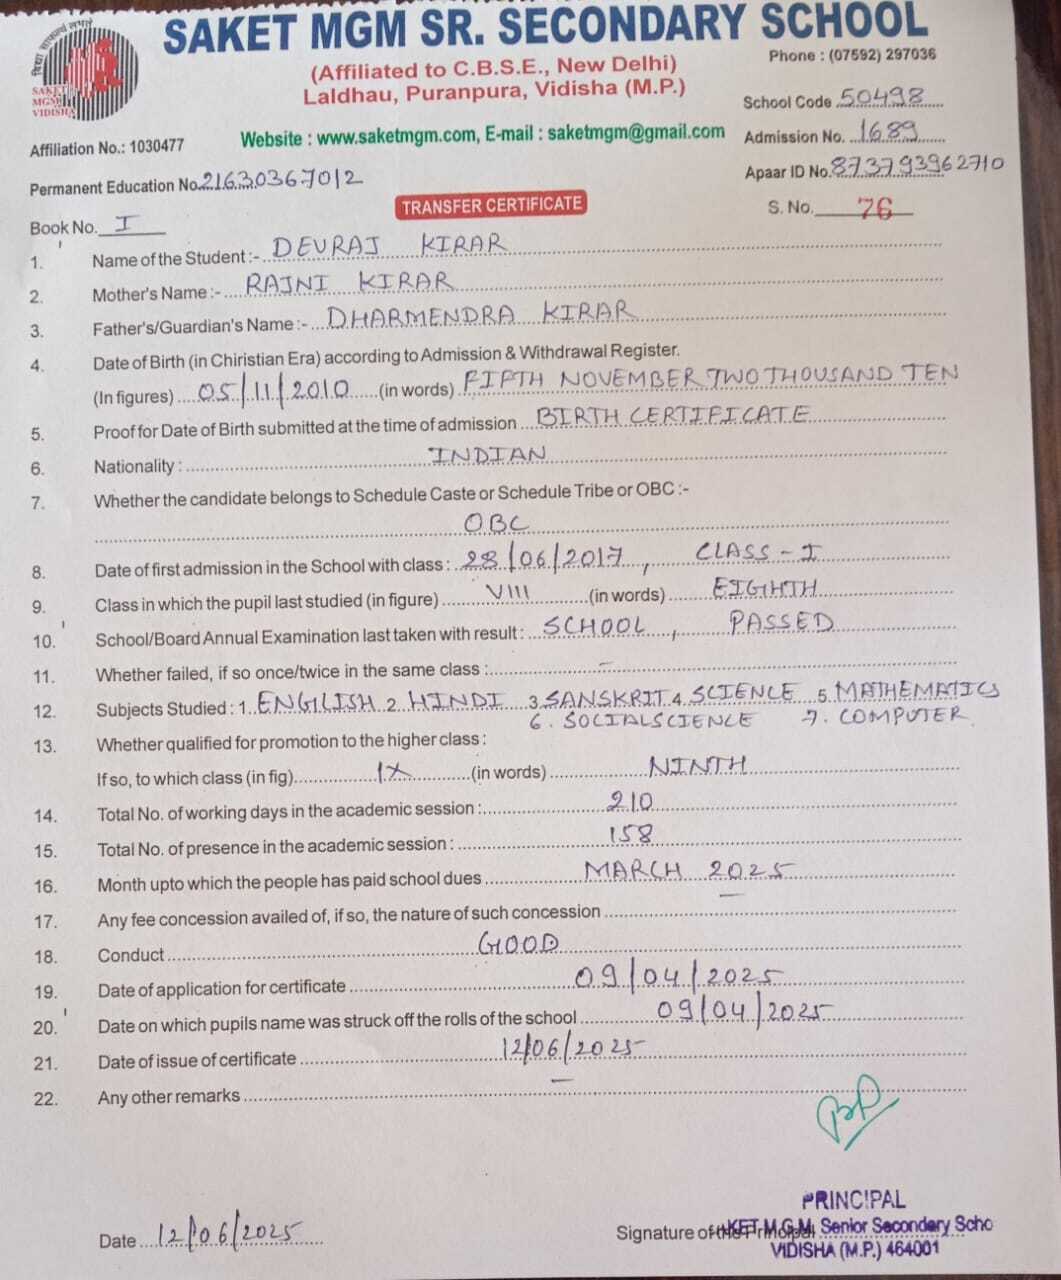 विद्या सामर्थ्य लभते
SAKET
MGM
VIDISHA
SAKET MGM SR. SECONDARY SCHOOL
Phone : (07592) 297036
(Affiliated to C.B.S.E., New Delhi)
Laldhau, Puranpura, Vidisha (M.P.)
School Code 50498
Website : www.saketmgm.com, E-mail : saketmgm@gmail.com
Admission No. 1689
Affiliation No.: 1030477
Apaar ID No. 873793962710
Permanent Education No. 21630367012
TRANSFER CERTIFICATE
S. No. 76
Book No. I
1. Name of the Student :- DEVRAJ KIRAR
2. Mother's Name :- RAJNI KIRAR
3. Father's/Guardian's Name :- DHARMENDRA KIRAR
4. Date of Birth (in Chiristian Era) according to Admission & Withdrawal Register.
(In figures) 05/11/2010 (in words) FIFTH NOVEMBER TWO THOUSAND TEN
5. Proof for Date of Birth submitted at the time of admission BIRTH CERTIFICATE
6. Nationality : INDIAN
7. Whether the candidate belongs to Schedule Caste or Schedule Tribe or OBC :-
OBC
8. Date of first admission in the School with class : 28/06/2017, CLASS - I
9. Class in which the pupil last studied (in figure) VIII (in words) EIGHTH
10. School/Board Annual Examination last taken with result : SCHOOL, PASSED
11. Whether failed, if so once/twice in the same class : —
12. Subjects Studied : 1. ENGLISH 2. HINDI 3. SANSKRIT 4. SCIENCE 5. MATHEMATICS
6. SOCIALSCIENCE 7. COMPUTER
13. Whether qualified for promotion to the higher class :
If so, to which class (in fig) IX (in words) NINTH
14. Total No. of working days in the academic session : 210
15. Total No. of presence in the academic session : 158
16. Month upto which the people has paid school dues MARCH 2025
17. Any fee concession availed of, if so, the nature of such concession —
18. Conduct GOOD
19. Date of application for certificate 09/04/2025
20. Date on which pupils name was struck off the rolls of the school 09/04/2025
21. Date of issue of certificate 12/06/2025
22. Any other remarks —
PRINCIPAL
Date 12/06/2025
Signature of the Principal
KET M.G.M. Senior Secondery Scho
VIDISHA (M.P.) 464001